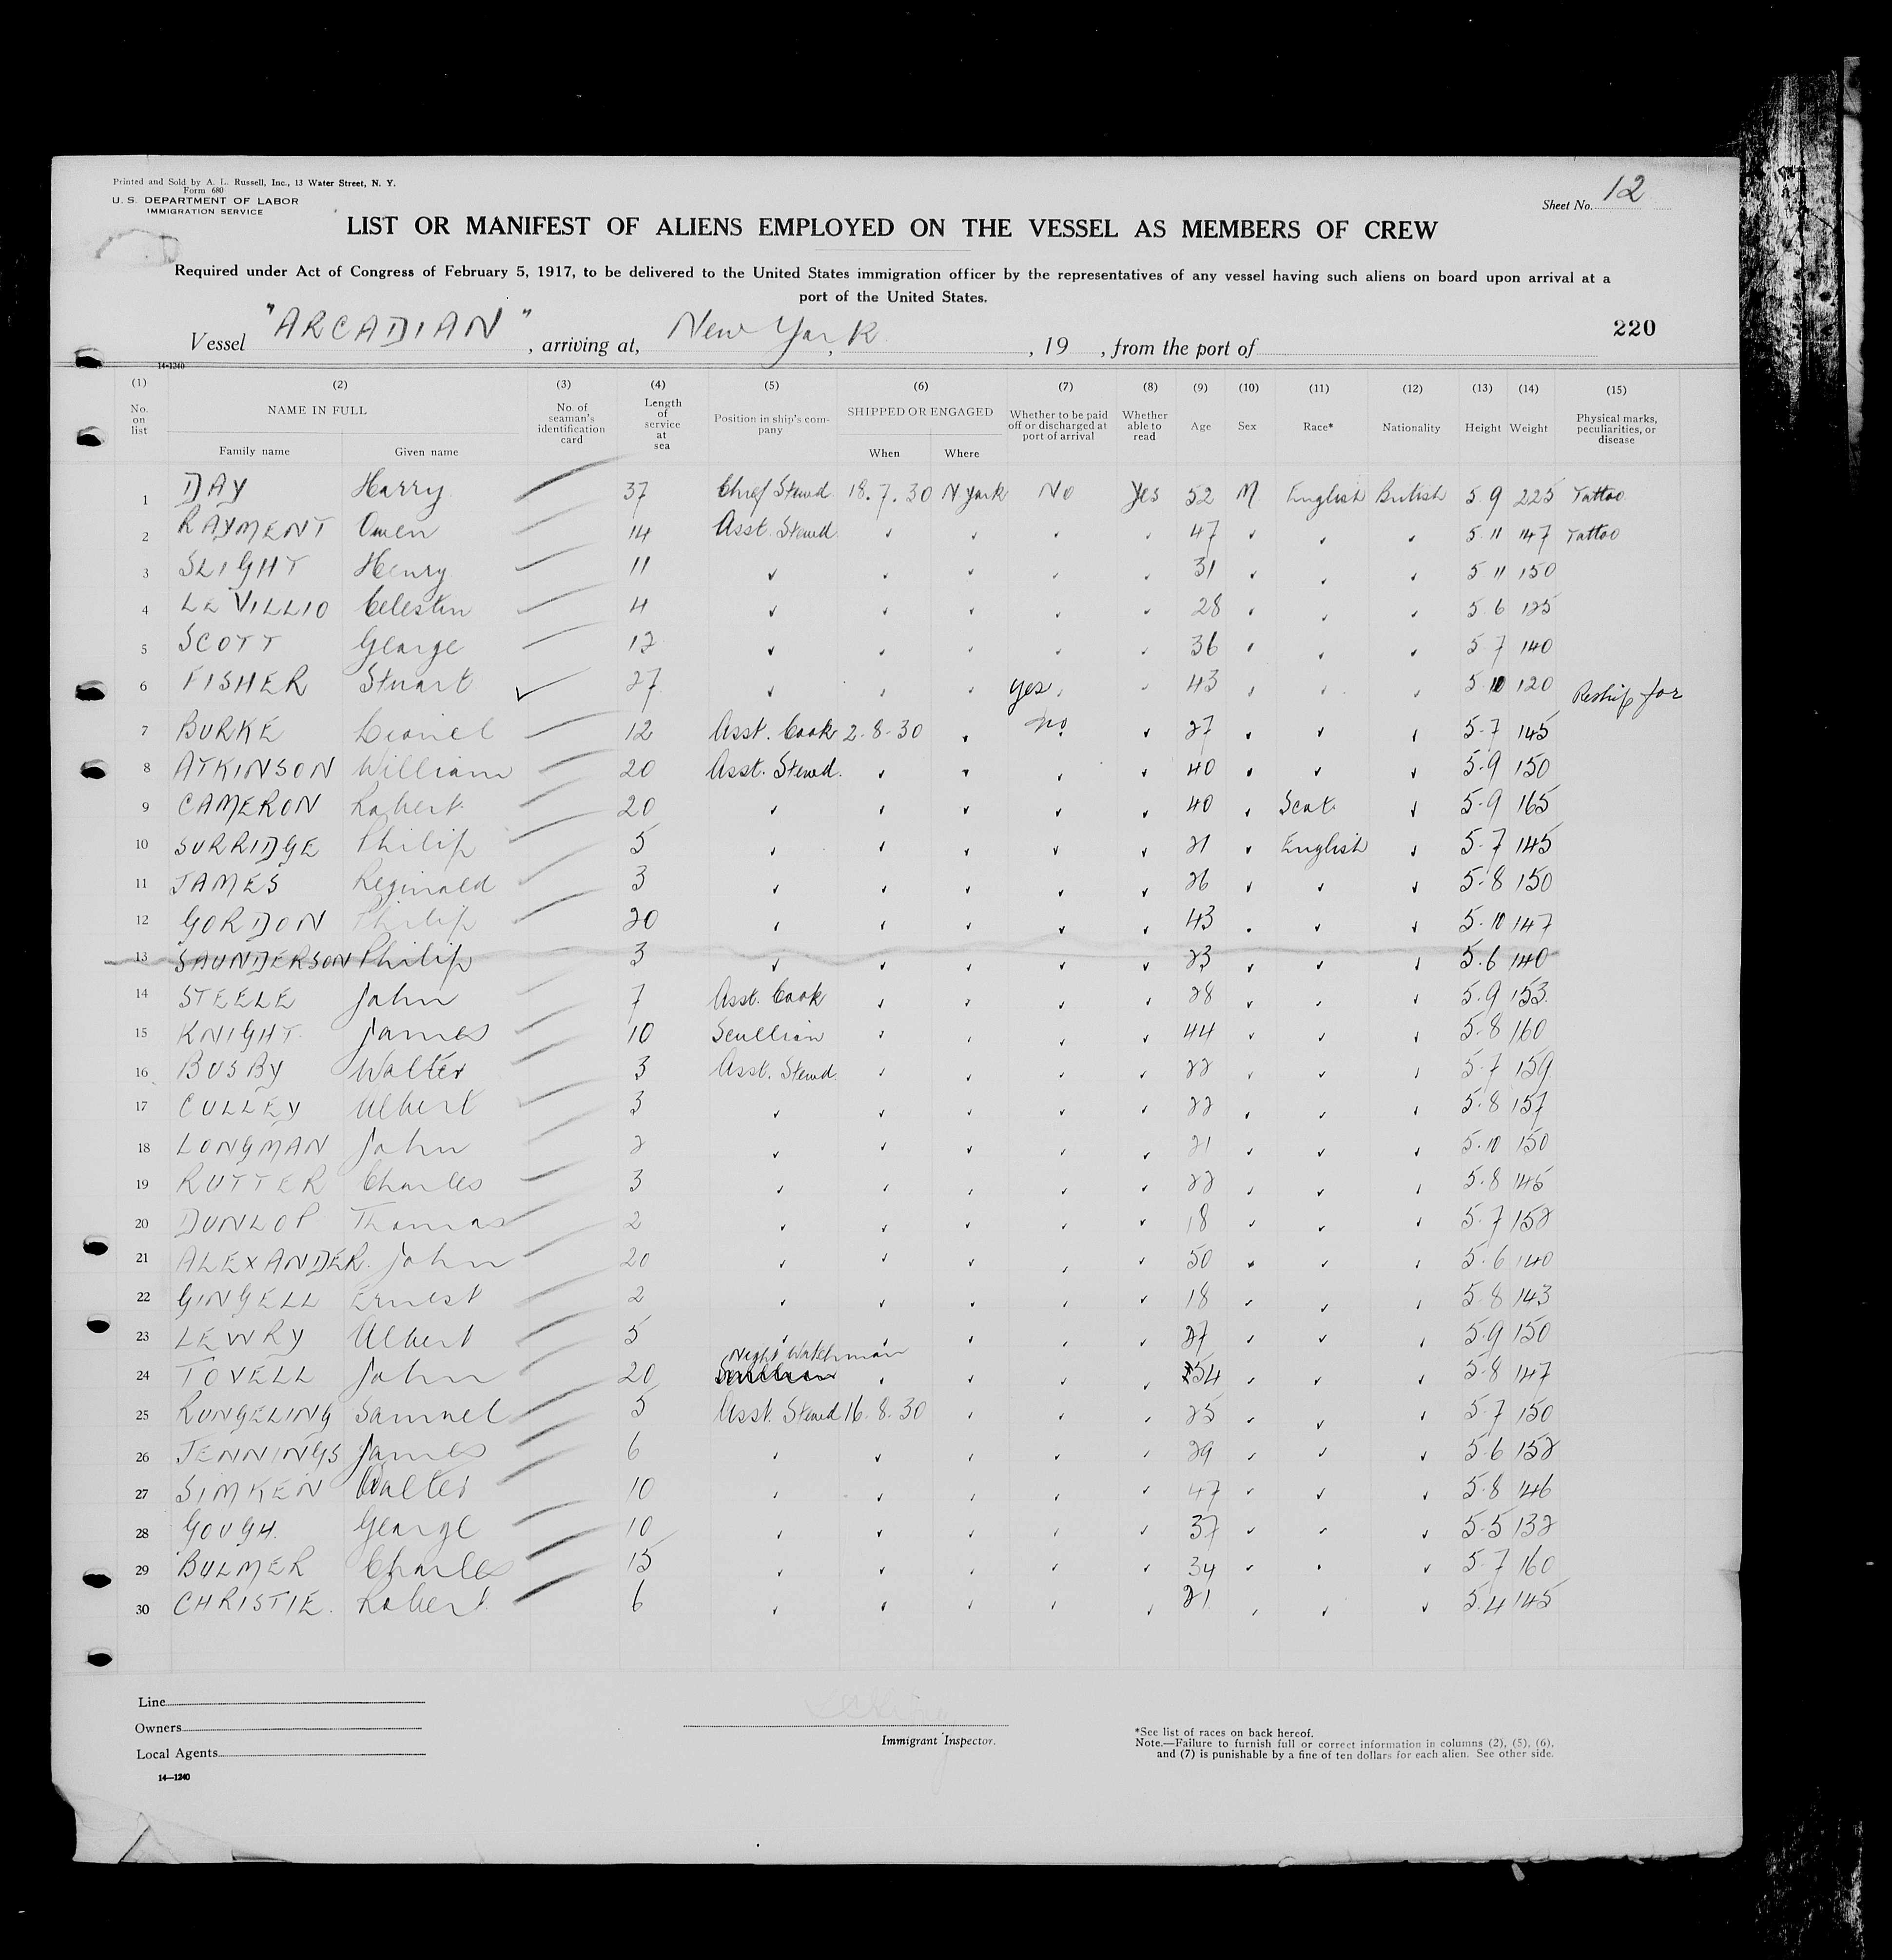 Printed and Sold by A. L. Russell, Inc., 13 Water Street, N. Y.
Form 680
U. S. DEPARTMENT OF LABOR
IMMIGRATION SERVICE
Sheet No. 12
LIST OR MANIFEST OF ALIENS EMPLOYED ON THE VESSEL AS MEMBERS OF CREW
Required under Act of Congress of February 5, 1917, to be delivered to the United States immigration officer by the representatives of any vessel having such aliens on board upon arrival at a
port of the United States.
220
Vessel "ARCADIAN", arriving at, New York, , 19 , from the port of
14-1240
(1) (2) (3) (4) (5) (6) (7) (8) (9) (10) (11) (12) (13) (14) (15)
No. on list NAME IN FULL No. of seaman's identification card Length of service at sea Position in ship's company SHIPPED OR ENGAGED Whether to be paid off or discharged at port of arrival Whether able to read Age Sex Race* Nationality Height Weight Physical marks, peculiarities, or disease
Family name Given name When Where
1 DAY Harry 37 Chief Stewd 18.7.30 N York No Yes 52 M English British 5 9 225 Tattoo
2 RAYMENT Owen 14 Asst. Stewd ✓ ✓ ✓ ✓ 47 ✓ ✓ ✓ 5 11 147 Tattoo
3 SLIGHT Henry 11 ✓ ✓ ✓ ✓ ✓ 31 ✓ ✓ ✓ 5 11 150
4 LE VILLIO Celestin 4 ✓ ✓ ✓ ✓ ✓ 28 ✓ ✓ ✓ 5 6 125
5 SCOTT George 12 ✓ ✓ ✓ ✓ ✓ 36 ✓ ✓ ✓ 5 7 140
6 FISHER Stuart ✓ 27 ✓ ✓ ✓ yes ✓ 43 ✓ ✓ ✓ 5 10 120 Reship for
7 BURKE Lionel 12 Asst. Cook 2-8-30 ✓ no ✓ 27 ✓ ✓ ✓ 5-7 145
8 ATKINSON William 20 Asst. Stewd. ✓ ✓ ✓ ✓ 40 ✓ ✓ ✓ 5-9 150
9 CAMERON Robert 20 ✓ ✓ ✓ ✓ ✓ 40 ✓ Scot ✓ 5-9 165
10 SURRIDGE Philip 5 ✓ ✓ ✓ ✓ ✓ 21 ✓ English ✓ 5-7 145
11 JAMES Reginald 3 ✓ ✓ ✓ ✓ ✓ 26 ✓ ✓ ✓ 5-8 150
12 GORDON Philip 20 ✓ ✓ ✓ ✓ ✓ 43 ✓ ✓ ✓ 5-10 147
13 SAUNDERSON Philip 3 ✓ ✓ ✓ ✓ ✓ 23 ✓ ✓ ✓ 5.6 140
14 STEELE John 7 Asst. Cook ✓ ✓ ✓ ✓ 28 ✓ ✓ ✓ 5.9 153
15 KNIGHT James 10 Scullion ✓ ✓ ✓ ✓ 44 ✓ ✓ ✓ 5-8 160
16 BUSBY Walter 3 Asst. Stewd ✓ ✓ ✓ ✓ 22 ✓ ✓ ✓ 5-7 159
17 CULLEY Albert 3 ✓ ✓ ✓ ✓ ✓ 22 ✓ ✓ ✓ 5-8 157
18 LONGMAN John 2 ✓ ✓ ✓ ✓ ✓ 21 ✓ ✓ ✓ 5-10 150
19 RUTTER Charles 3 ✓ ✓ ✓ ✓ ✓ 22 ✓ ✓ ✓ 5-8 145
20 DUNLOP Thomas 2 ✓ ✓ ✓ ✓ ✓ 18 ✓ ✓ ✓ 5-7 152
21 ALEXANDER John 20 ✓ ✓ ✓ ✓ ✓ 50 ✓ ✓ ✓ 5-6 140
22 GINGELL Ernest 2 ✓ ✓ ✓ ✓ ✓ 18 ✓ ✓ ✓ 5-8 143
23 LEWRY Albert 5 ✓ ✓ ✓ ✓ ✓ 27 ✓ ✓ ✓ 5-9 150
24 TOVELL John 20 Night Watchman ✓ ✓ ✓ ✓ 54 ✓ ✓ ✓ 5-8 147
25 RUNGELING Samuel 5 Asst. Stewd 16.8.30 ✓ ✓ ✓ 25 ✓ ✓ ✓ 5-7 150
26 JENNINGS James 6 ✓ ✓ ✓ ✓ ✓ 29 ✓ ✓ ✓ 5-6 152
27 SIMKEN Walter 10 ✓ ✓ ✓ ✓ ✓ 47 ✓ ✓ ✓ 5-8 146
28 GOUGH. George 10 ✓ ✓ ✓ ✓ ✓ 37 ✓ ✓ ✓ 5-5 132
29 BULMER Charles 15 ✓ ✓ ✓ ✓ ✓ 34 ✓ ✓ ✓ 5-7 160
30 CHRISTIE. Robert 6 ✓ ✓ ✓ ✓ ✓ 21 ✓ ✓ ✓ 5.4 145
Line
Owners
Local Agents
14—1240
Immigrant Inspector.
*See list of races on back hereof.
Note.—Failure to furnish full or correct information in columns (2), (5), (6),
and (7) is punishable by a fine of ten dollars for each alien. See other side.